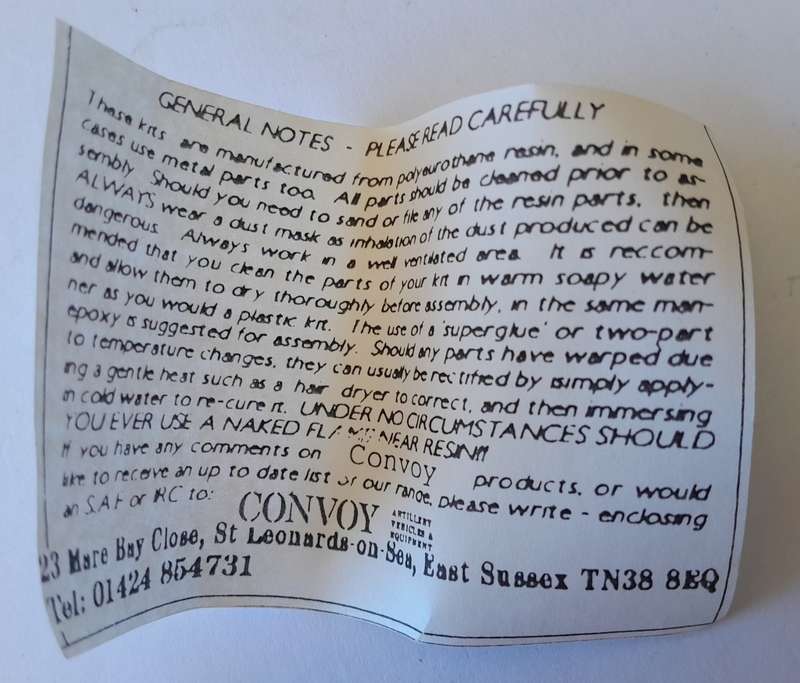 GENERAL NOTES - PLEASE READ CAREFULLY
These kits are manufactured from polyeurothane resin, and in some
cases use metal parts too. All parts should be cleaned prior to as-
sembly Should you need to sand or file any of the resin parts, then
ALWAYS wear a dust mask as inhalation of the dust produced can be
dangerous. Always work in a well ventilated area. It is reccom-
mended that you clean the parts of your kit in warm soapy water
and allow them to dry thoroughly before assembly, in the same man-
ner as you would a plastic kit. The use of a 'superglue' or two-part
epoxy is suggested for assembly. Should any parts have warped due
to temperature changes, they can usually be rectified by simply apply-
ing a gentle heat such as a hair dryer to correct, and then immersing
in cold water to re-cure it. UNDER NO CIRCUMSTANCES SHOULD
YOU EVER USE A NAKED FLAME NEAR RESIN!!
If you have any comments on Convoy products, or would
like to receive an up to date list of our range, please write - enclosing
an S.A.E or IRC to:
CONVOY ARTILLERY
VEHICLES &
EQUIPMENT
23 Mare Bay Close, St Leonards-on-Sea, East Sussex TN38 8EQ
Tel: 01424 854731